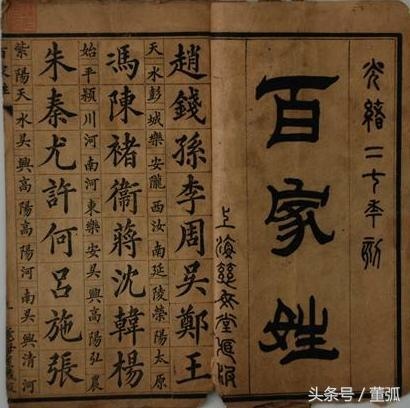 光緒二七年刻
百家姓
上海慈堂
趙錢孫李周吳鄭王
天水彭城樂安隴西汝南延陵滎陽太原
馮陳褚衛蔣沈韓楊
始平潁川河南河東樂安吳興高陽弘農
朱秦尤許何呂施張
紫陽天水吳興高陽高陽河南吳興清河
头条号 / 董弧